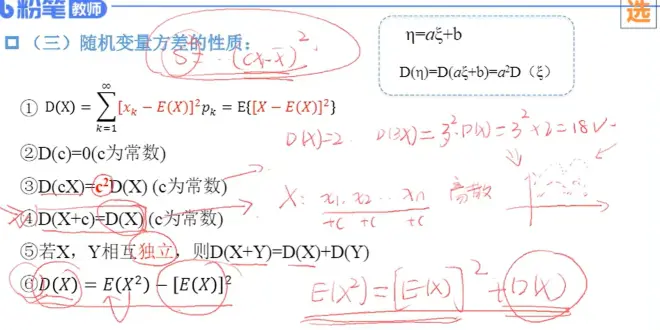 粉笔教师
选
（三）随机变量方差的性质：
S² · (cx-x̄)²
η=aξ+b
D(η)=D(aξ+b)=a²D（ξ）
① D(X) = ∑_{k=1}^{∞} [x_k − E(X)]² p_k = E{[X − E(X)]²}
D(X)=2. D(3X)=3²·D(X)=3²×2=18
②D(c)=0(c为常数)
③D(cX)=c²D(X) (c为常数)
X: x₁. x₂ ... xₙ 离散
④D(X+c)=D(X) (c为常数)
+c +c +c
⑤若X，Y相互独立，则D(X+Y)=D(X)+D(Y)
⑥D(X) = E(X²) − [E(X)]²
E(X²)=[E(X)]²+D(X)